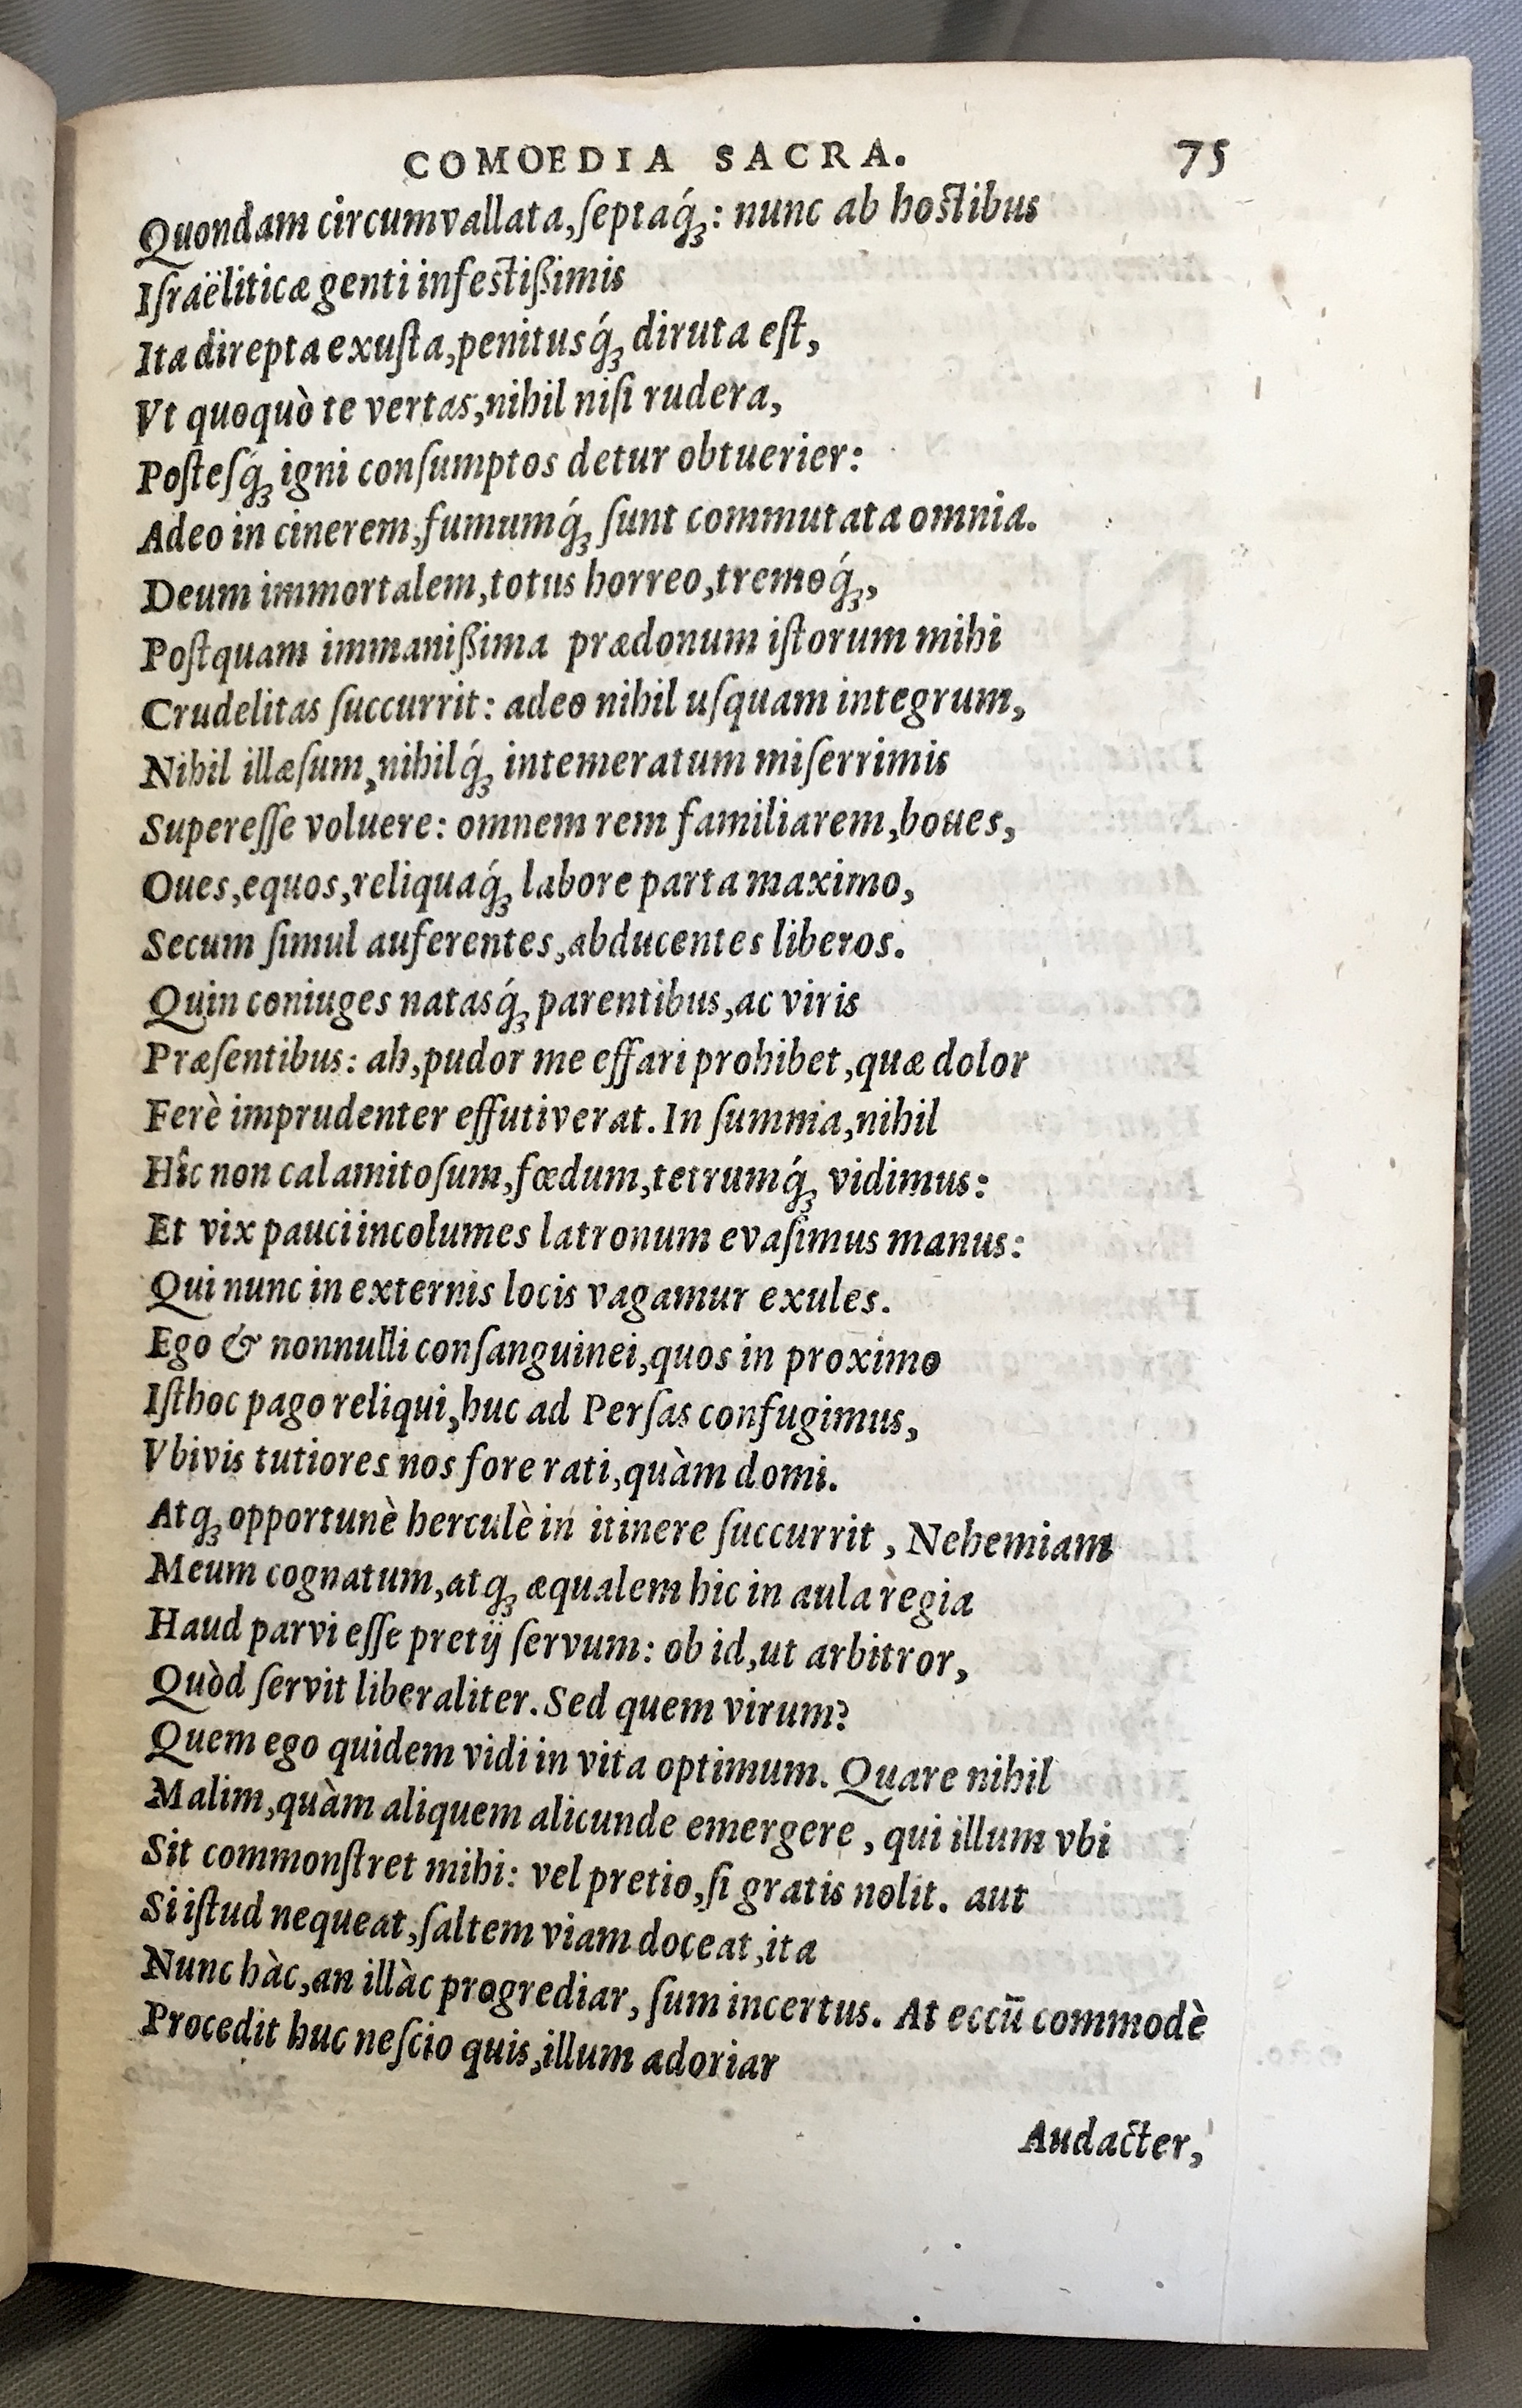 COMOEDIA SACRA. 75
Quondam circumvallata, ſeptaq́ꝫ: nunc ab hoſtibus
Iſraëliticæ genti infeſtißimis
Ita direpta exuſta, penitusq́ꝫ diruta eſt,
Vt quoquò te vertas, nihil niſi rudera,
Poſteſq́ꝫ igni conſumptos detur obtuerier:
Adeo in cinerem, fumumq́ꝫ ſunt commutata omnia.
Deum immortalem, totus horreo, tremoq́ꝫ,
Poſtquam immanißima prædonum iſtorum mihi
Crudelitas ſuccurrit: adeo nihil uſquam integrum,
Nihil illæſum, nihilq́ꝫ intemeratum miſerrimis
Supereſſe voluere: omnem rem familiarem, boues,
Oues, equos, reliquaq́ꝫ labore parta maximo,
Secum ſimul auferentes, abducentes liberos.
Quin coniuges natasq́ꝫ parentibus, ac viris
Præſentibus: ah, pudor me effari prohibet, quæ dolor
Ferè imprudenter effutiverat. In ſumma, nihil
Hîc non calamitoſum, fœdum, tetrumq́ꝫ vidimus:
Et vix pauci incolumes latronum evaſimus manus:
Qui nunc in externis locis vagamur exules.
Ego & nonnulli conſanguinei, quos in proximo
Iſthoc pago reliqui, huc ad Perſas confugimus,
Vbivis tutiores nos fore rati, quàm domi.
Atqꝫ opportunè herculè in itinere ſuccurrit, Nehemiam
Meum cognatum, atqꝫ æqualem hic in aula regia
Haud parvi eſſe pretij ſervum: ob id, ut arbitror,
Quòd ſervit liberaliter. Sed quem virum?
Quem ego quidem vidi in vita optimum. Quare nihil
Malim, quàm aliquem alicunde emergere, qui illum vbi
Sit commonſtret mihi: vel pretio, ſi gratis nolit. aut
Si iſtud nequeat, ſaltem viam doceat, ita
Nunc hàc, an illàc progrediar, ſum incertus. At eccū commodè
Procedit huc neſcio quis, illum adoriar
Audacter,